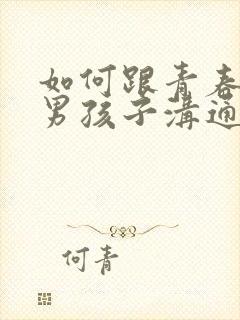 如何跟青春
男孩子溝通
何青